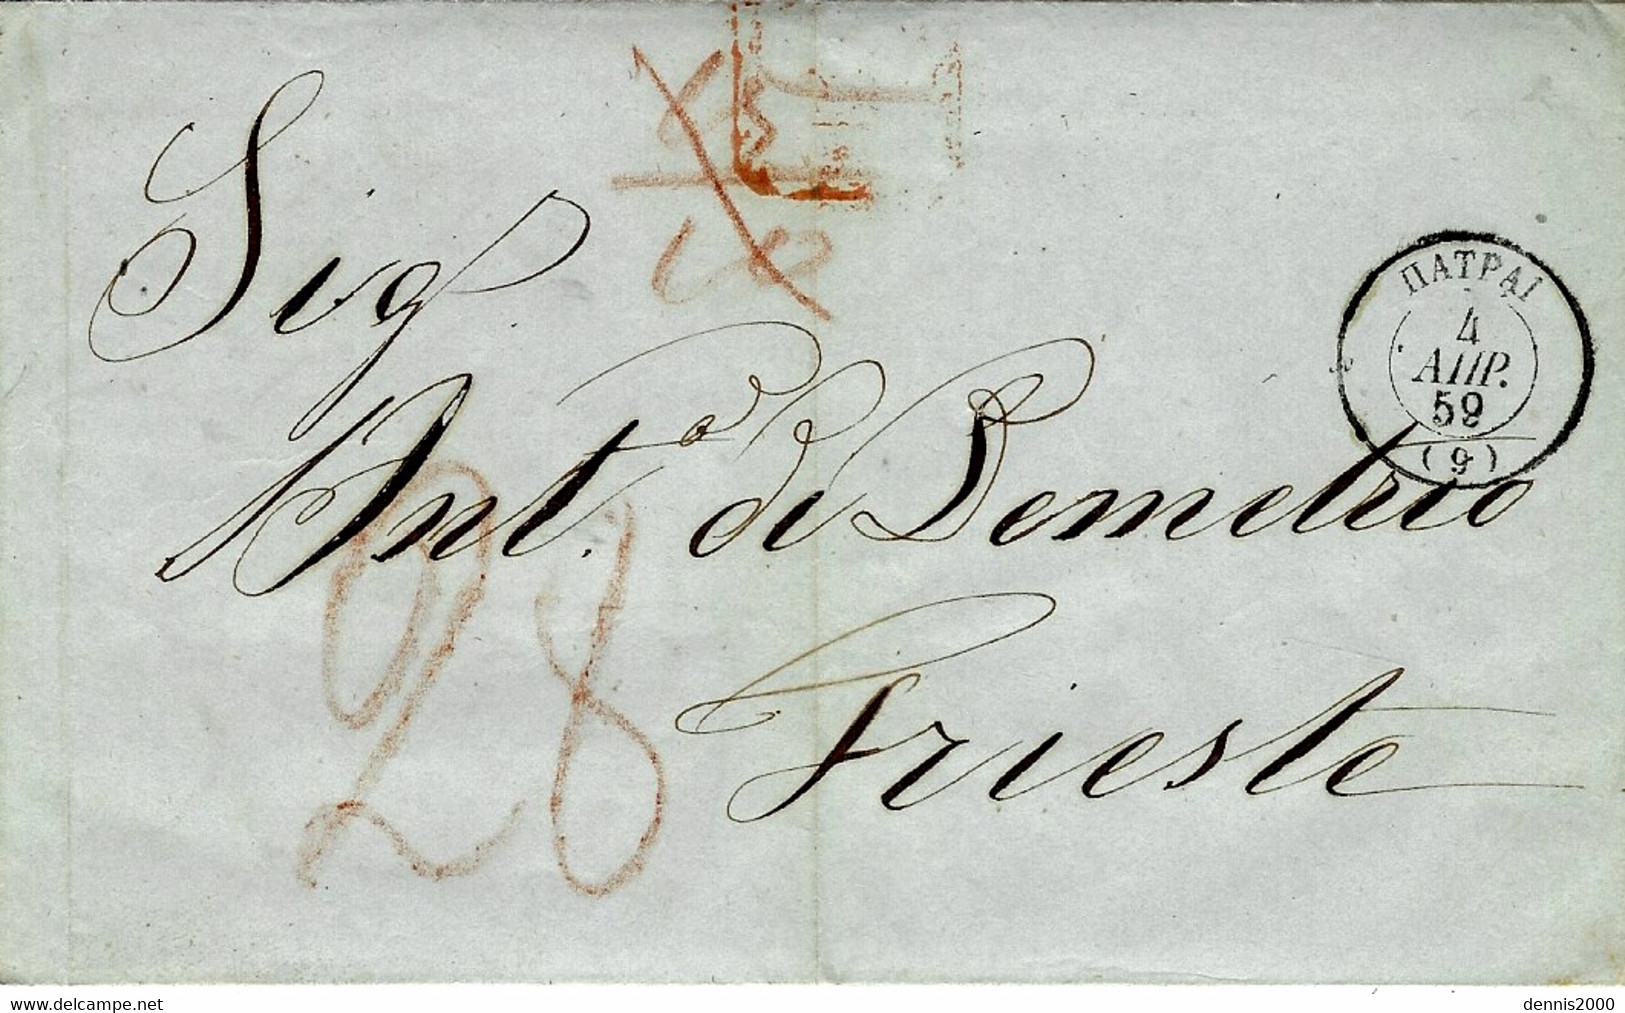 Sig.r
Ant.o di Demetrio
Trieste
28
ΠΑΤΡΑΙ
4
ΑΠΡ.
59
(9)
www.delcampe.net
dennis2000